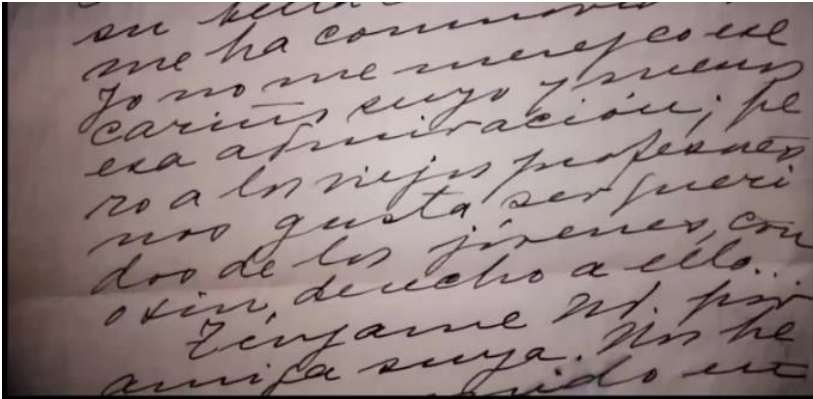 su bella
me ha conmovido
Yo no me merezco ese
cariño suyo y menos
esa admiración; pe
ro a los viejos profesores
nos gusta ser queri
dos de los jóvenes, con
o sin, derecho a ello..
Téngame Ud. por
amiga suya. Nos he
en